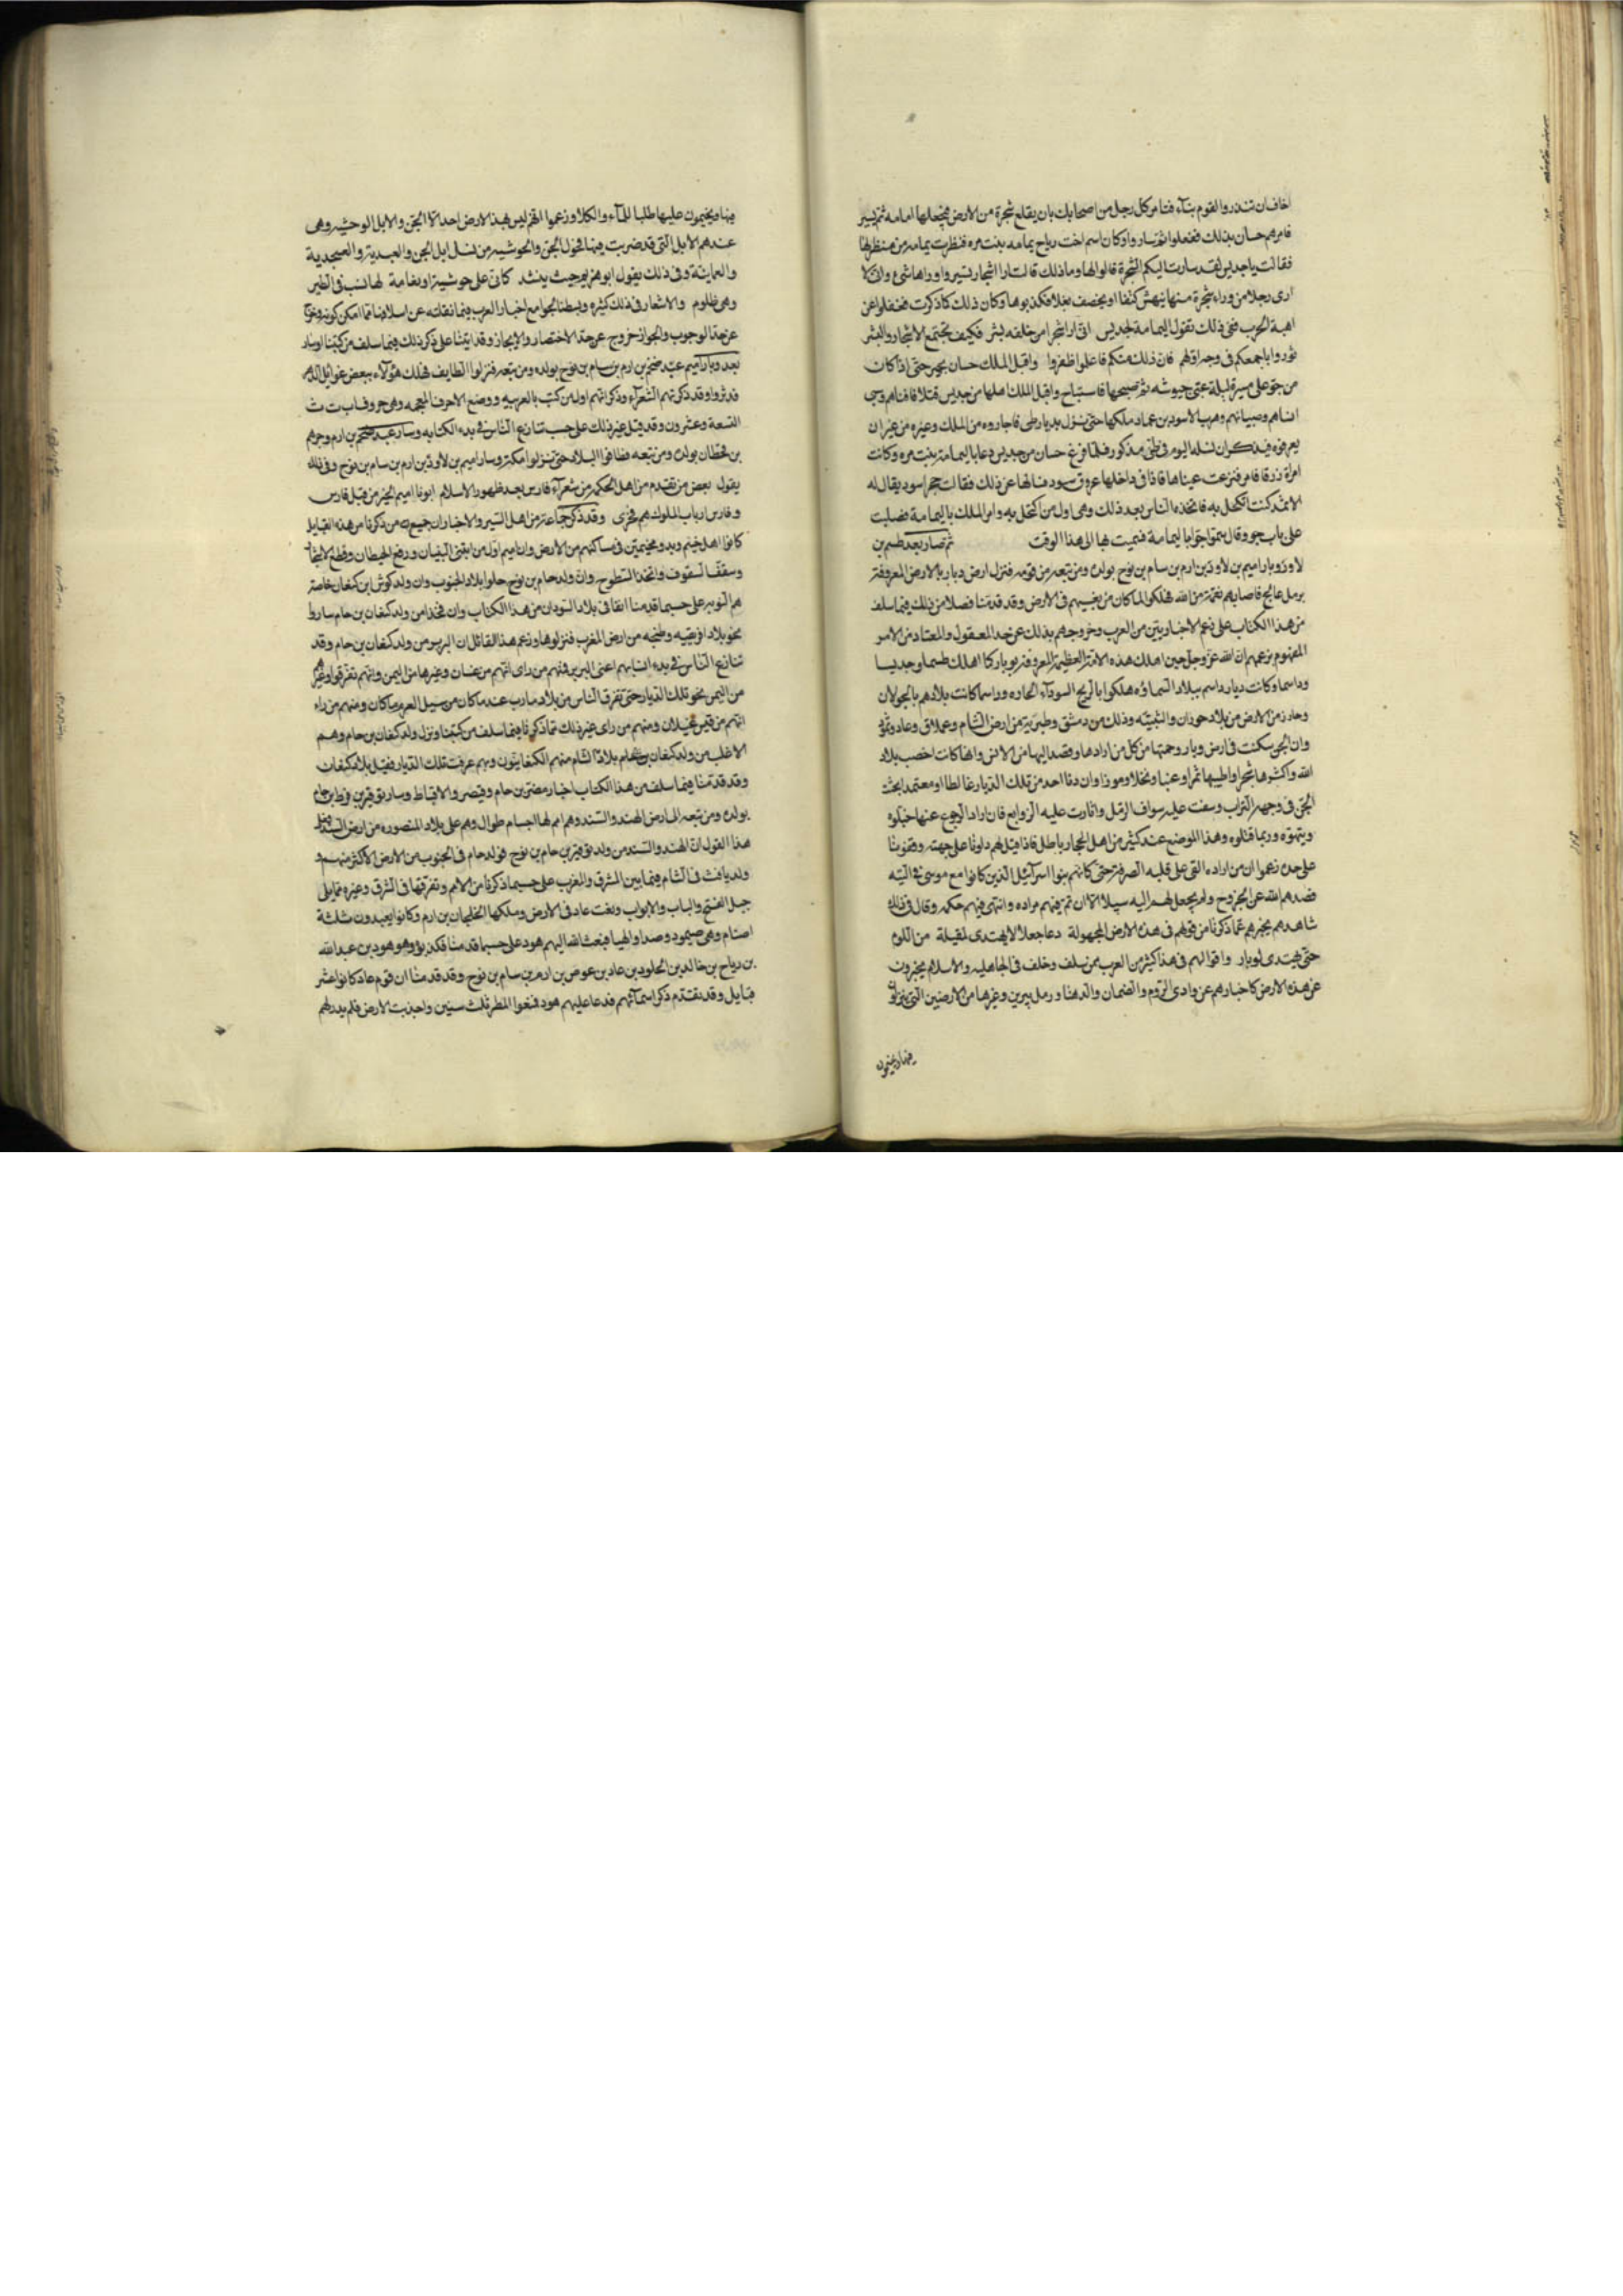 اخاف ان تنذر والقوم بنآء فنامر كل رجل من اصحابك بان يقلع شجرة من الارض فيجعلها امامه ثم يسير
فامرهم حسان بذلك ففعلوا ثم سار وا وكان اسم اخت رياح يمامه بنت مره فنظرت يمامه من منظر لها
فقالت يا جديس لقد سارت اليكم الشجرة قالوا لها وما ذلك قالت ارا اشجار تسير وا وراها شيء وانى لا
ارى رجلا من وراء شجرة منها ينهش كتفا او يخصف نعلا فكذبوها وكان ذلك كما ذكرت فغفلوا عن
اهبة الحرب ففى ذلك تقول اليمامة لجديس انى ارا شجرا من خلفه بشر فكيف تجتمع الاشجار والبشر
ثوروا باجمعكم فى وجه اولهم فان ذلك منكم فاعلموا ظفروا واقبل الملك حسان بحير حتى اذا كان
من جو على مسيرة ليلة عبى جيوشه ثم صبحها فاستباح واقبل الملك اهلها من جديس قتلا فافناهم وسبى
نساهم وصبيانهم وهرب الاسود بن عماد ملكها حتى نزل بديار طى فاجاروه من الملك وغيره من غير ان
يعرفوه فيذكر ان نسله اليوم فى طى مذكور فلما فرغ حسان من جديس دعا باليمامة بنت مره وكانت
امراة زرقا فامر فنزعت عيناها فاذا فى داخلها عروق سود فسالها عن ذلك فقالت حجر اسود يقال له
الاثمد كنت اكتحل به فاتخذه الناس بعد ذلك وهى اول من اكتحل به وامر الملك باليمامة فصلبت
على باب جو وقال سموا جوا باليمامة فسميت بها الى هذا الوقت ثم صار بعد طسم بن
لاوذ وبار اميم بن لاوذ بن ارم بن سام بن نوح بولده ومن تبعه من قومه فنزل ارض دبار بالارض المعروفة
برمل عالج فاصابهم نقمة من الله فهلكوا لما كان من بغيهم فى الارض وقد قدمنا فصلا من ذلك فيما سلف
من هذا الكتاب على زعم الاخباريين من العرب وخروجهم بذلك عن حد المعقول والمعتاد من الامر
المفهوم بزعمهم ان الله عز وجل حين اهلك هذه الامة العظيمة المعروفة بوبار كما اهلك طسما وجديسا
وداسما وكانت ديار داسم ببلاد السماوه هلكوا بالريح السوداء الحاره وداسما كانت بلادهم بالجولان
وحازر من الارض من بلاد حوران والبثنيه وذلك من دمشق وطبرية من ارض الشام وعملاق وعاد وثمود
وان الجن سكنت فى ارض وبار وحمتها من كل من ارادها وقصد اليها من الانس وانها كانت اخصب بلاد
الله واكثرها شجرا واطيبها ثمرا وعنبا ونخلا وموزا وان دنا احد من تلك الديار غالطا او معتمدا بحثت
الجن فى وجهه التراب وسفت عليه سواف الرمل واثارت عليه الزوابع فان اراد الرجوع عنها خبلوه
ويتهوه وربما قتلوه وهذا الموضع عند كثير من اهل الحجا باطل فاذا قيل لهم دلونا على جهته وقفونا
على حده زعموا ان من اراده القى على قلبه الصرفة حتى كانهم بنوا اسرائيل الذين كانوا مع موسى فى التيه
فصدهم الله عن الخروج ولم يجعل لهم اليه سبيلا الا ان تم فيهم مراده وانتهى فيهم حكمه وقال فى ذلك
شاهدهم يخبرهم عما ذكرنا من قولهم فى هذه الارض المجهولة دعا جعلا لا يهتدى لمقيلة من اللوم
حتى يهتدى لوبار واقوالهم فى هذا كثير من العرب ممن سلف وخلف فى الجاهليه والاسلام يخبرون
عن هذه الارض كاخبارهم عن وادى الروم والصمان والدهنا ورمل يبرين وغيرها من الارضين التى ينزلون
فيها ويخيمون
فيها ويخيمون عليها طلبا للمآء والكلا وزعموا انه ليس بهذه الارض احد الا الجن والابل الوحشيه وهى
عندهم الابل التى قد ضربت فيها فحول الجن والحوشيه من نسل ابل الجن والعبدية والعسجدية
والعمانية وفى ذلك يقول ابو هريم حيث ينشد كانى على حوشية او نعامة لها نسب فى الطير
وهى ظلوم والاشعار فى ذلك كثيره وبسطنا لجوامع اخبار العرب فيما نقلته عن اسلافنا مما امكن كونه وخرج
عن حد الوجوب والجواز خروج عن حد الاختصار والايجاز وقد اتينا على ذكر ذلك فيما سلف من كتبنا وسار
بعد وبار اميم عبد ضخم بن ارم بن سام بن نوح بولده ومن تبعه فنزلوا الطايف فهلك هؤلآء ببعض غوايل الدهر
فدثروا وقد ذكرتهم الشعرآء وذكر انهم اول من كتب بالعربيه ووضع الاحرف المعجمه وهى حروف ا ب ت ث
التسعة وعشرون وقد قيل غير ذلك على حسب تنازع الناس فى بدء الكتابه وسار بعد عبد ضخم بن ارم وجرهم
بن قحطان بولده ومن تبعه فطافوا البلاد حتى نزلوا مكة وسار اميم بن لاوذ بن ارم بن سام بن نوح وفى ذلك
يقول بعض من تقدم من اهل الحكمه من شعرآء فارس بعد ظهور الاسلام ابونا اميم الخير من قبل فارس
وفارس ارباب الملوك هم فخرى وقد ذكر جماعة من اهل السير والاخبار ان جميع من ذكرنا من هذه القبايل
كانوا اهل خيم وبدو مخيمين فى مساكنهم من الارض وان اميم اول من ابتنى البنيان ورفع الحيطان وقطع الاشجار
وسقف السقوف واتخذ السطوح وان ولد حام بن نوح حلوا ببلاد الجنوب وان ولد كوش ابن كنعان خاصة
هم النوبه على حسبما قدمنا انفا فى بلاد السودان من هذا الكتاب وان فخذا من ولد كنعان بن حام ساروا
نحو بلاد افريقيه وطنجه من ارض المغرب فنزلوها وزعم هذا القائل ان البربر من ولد كنعان بن حام وقد
تنازع الناس فى بدء انسابهم اعنى البربر فمنهم من راى انهم من غسان وغيرها من اليمن وانهم تفرقوا وغيرهم
من اليمن نحو تلك الديار حتى تفرق الناس من بلاد مارب عند ما كان من سيل العرم ما كان ومنهم من راء
انهم من قيس غيلان ومنهم من راى غير ذلك مما ذكرنا فيما سلف من كتبنا ونزل ولد كنعان بن حام وهم
الاغلب من ولد كنعان بن حام بلاد الشام منهم الكنعانيون وبهم عرفت تلك الديار فقيل بلاد كنعان
وقد قدمنا فيما سلف من هذا الكتاب اخبار مصر بن حام وقيصر والاقباط وسار نوفير بن فوط بن حام
بولده ومن تبعه الى ارض الهند والسند وهم امم لها اجسام طوال وهم على بلاد المنصوره من ارض السند فعلى
هذا القول ان الهند والسند من ولد نوفير بن حام بن نوح فولد حام فى الجنوب من الارض الاكثر منهم و
ولد يافث فى الشام فيما بين المشرق والمغرب على حسبما ذكرنا من الامم وتفرقها فى الشرق وغيره مما يلى
جبل الفتح والباب والابواب وبغت عاد فى الارض وملكها الخليجان بن ارم وكانوا يعبدون ثلثة
اصنام وهى صيمود وصدا والهبا فبعث الله اليهم هود على حسبما قدمنا فكذبوه وهو هود بن عبد الله
بن رياح بن خالد بن الجلود بن عاد بن عوص بن ارم بن سام بن نوح وقد قدمنا ان قوم عاد كانوا عشر
قبايل وقد تقدم ذكر اسمآئهم فدعا عليهم هود فمنعوا المطر ثلث سنين واجدبت الارض فلم يدر لهم